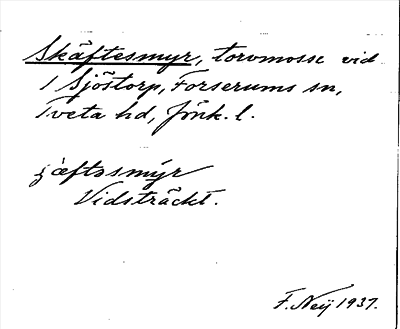 Skäftesmyr, torvmosse vid
1 Sjöstorp, Forserums sn,
Tveta hd, Jönk. l.
ʂæftəsmýr
Vidsträckt.
F. Neij 1937.